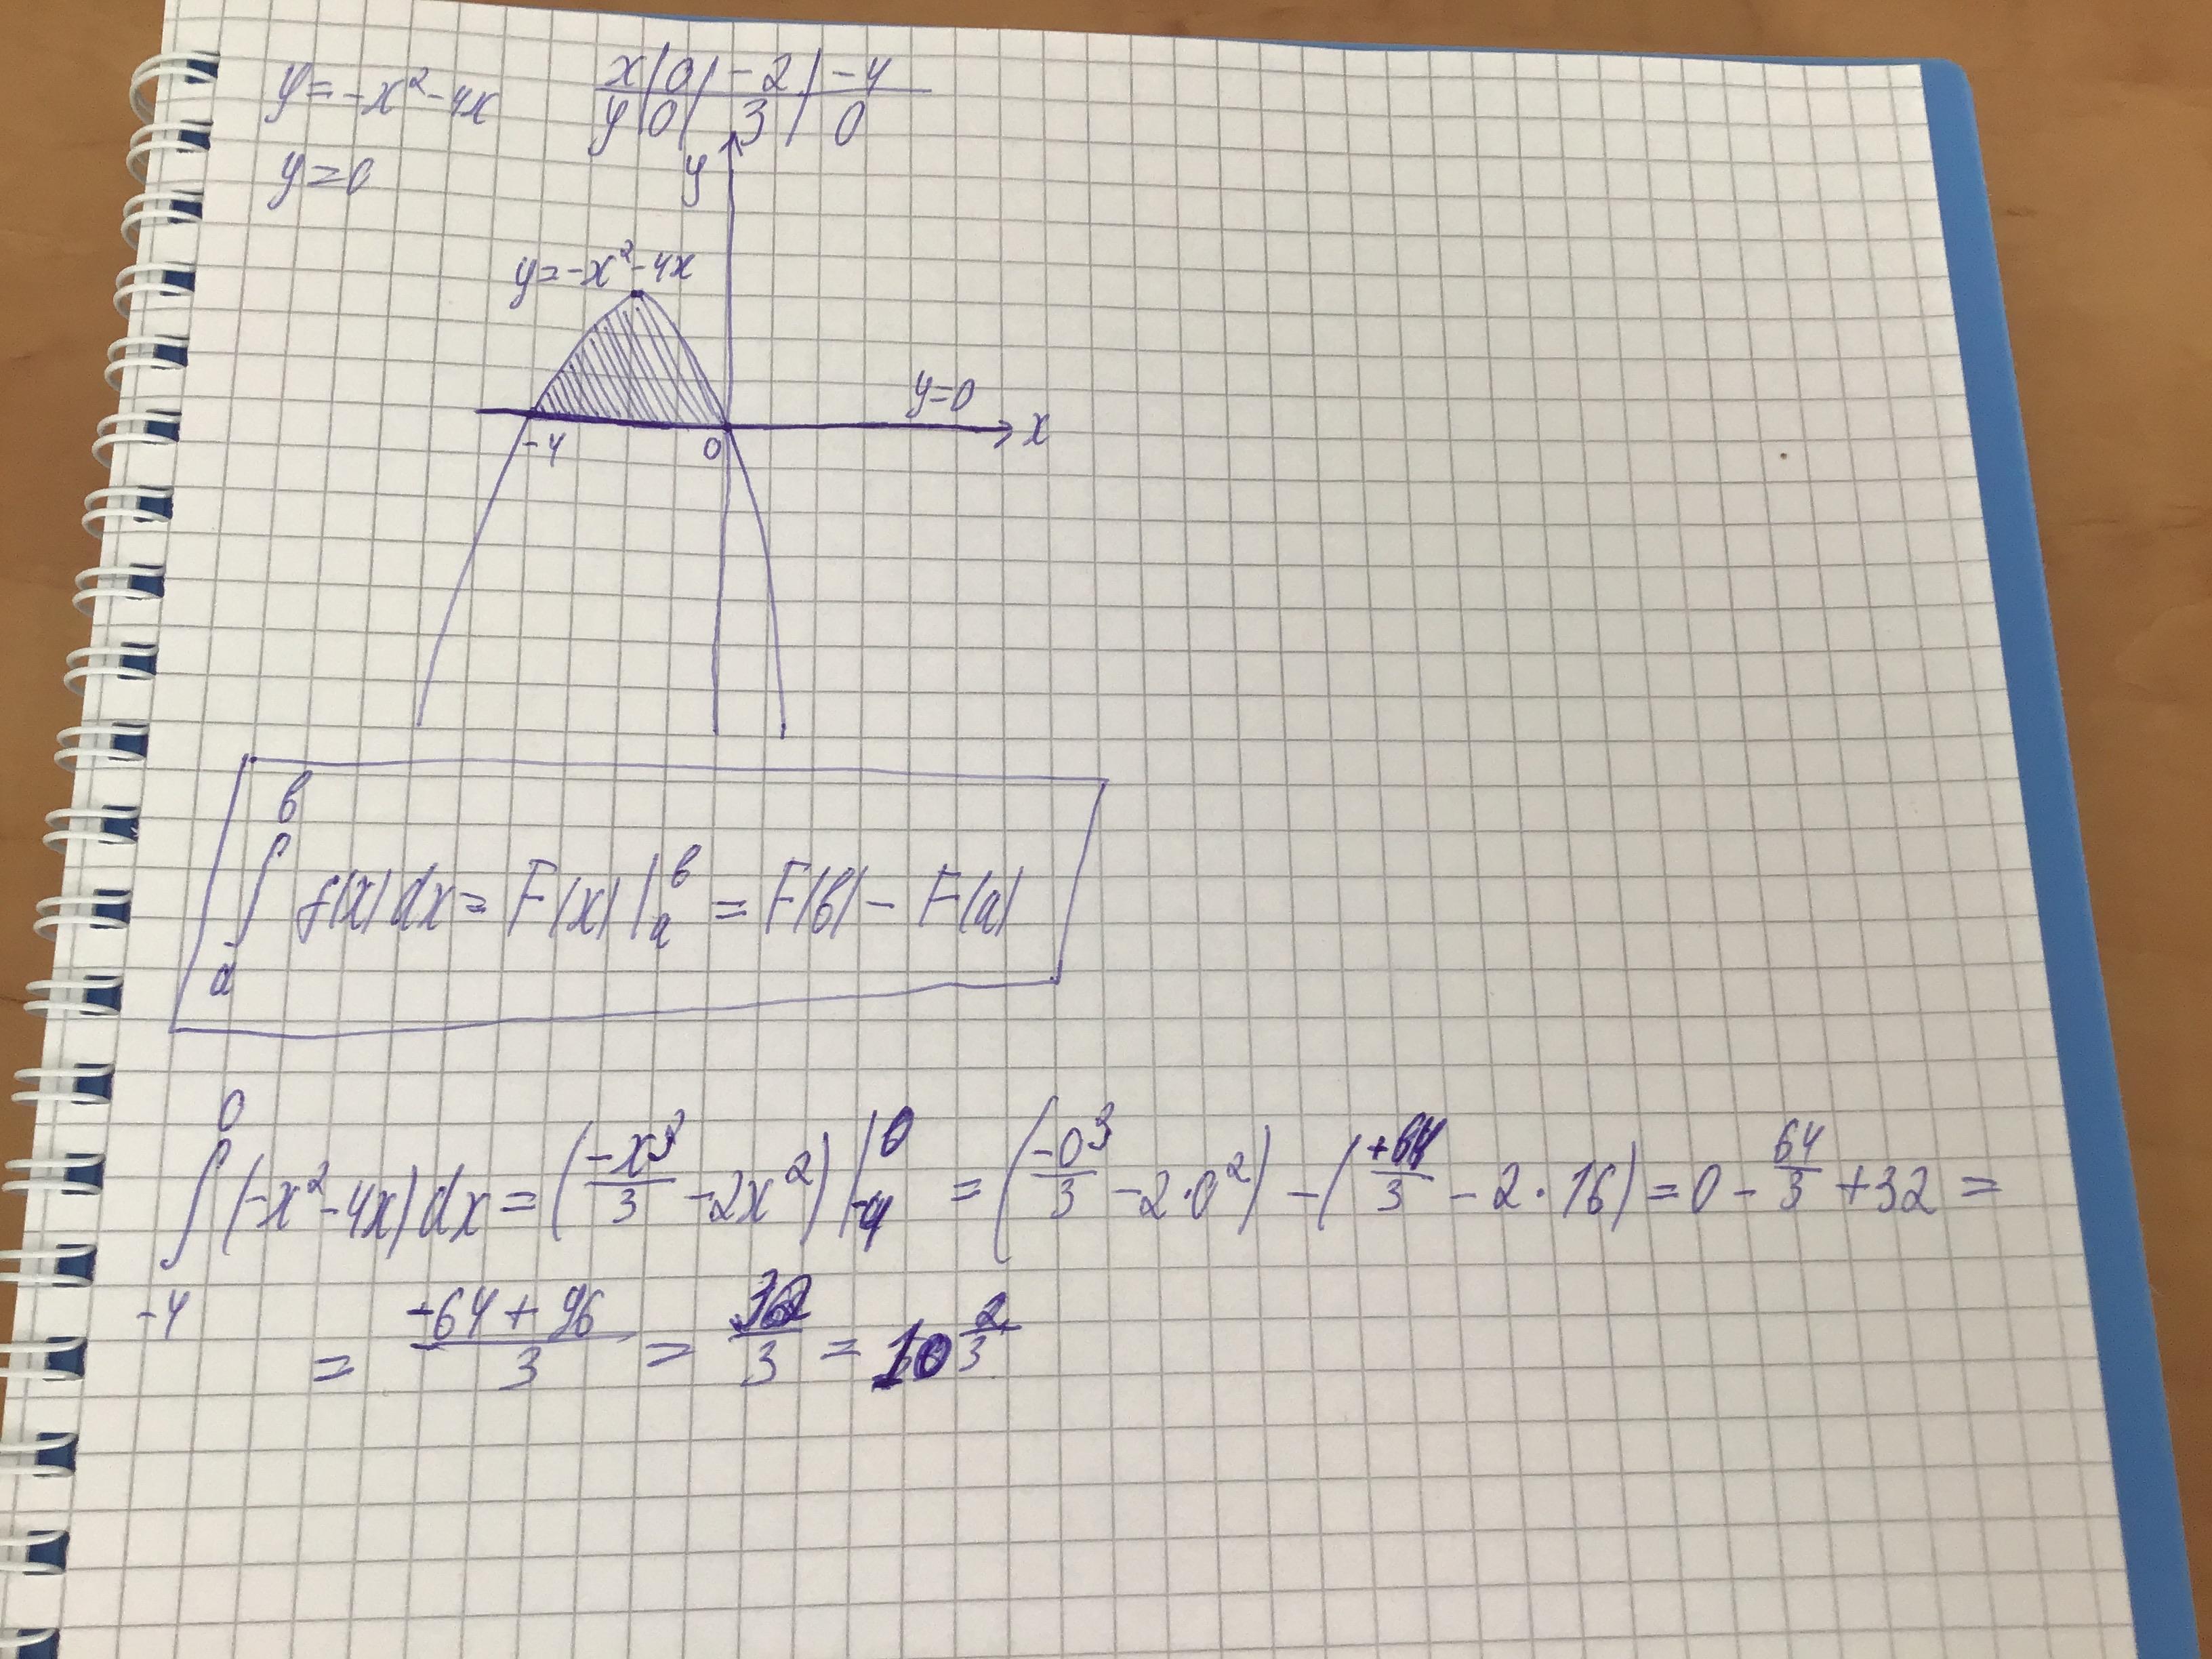 y=-x²-4x
x | 0 | -2 | -4
y | 0 | 3 | 0
y=0
y
y=-x²-4x
y=0
-4 0 x
b
∫ f(x)dx = F(x)|ᵇₐ = F(b) - F(a)
a
0
∫ (-x²-4x)dx = (-x³/3 - 2x²)|⁰₋₄ = (-0³/3 - 2·0²) - (+64/3 - 2·16) = 0 - 64/3 + 32 =
-4
= (-64+96)/3 = 32/3 = 10 2/3